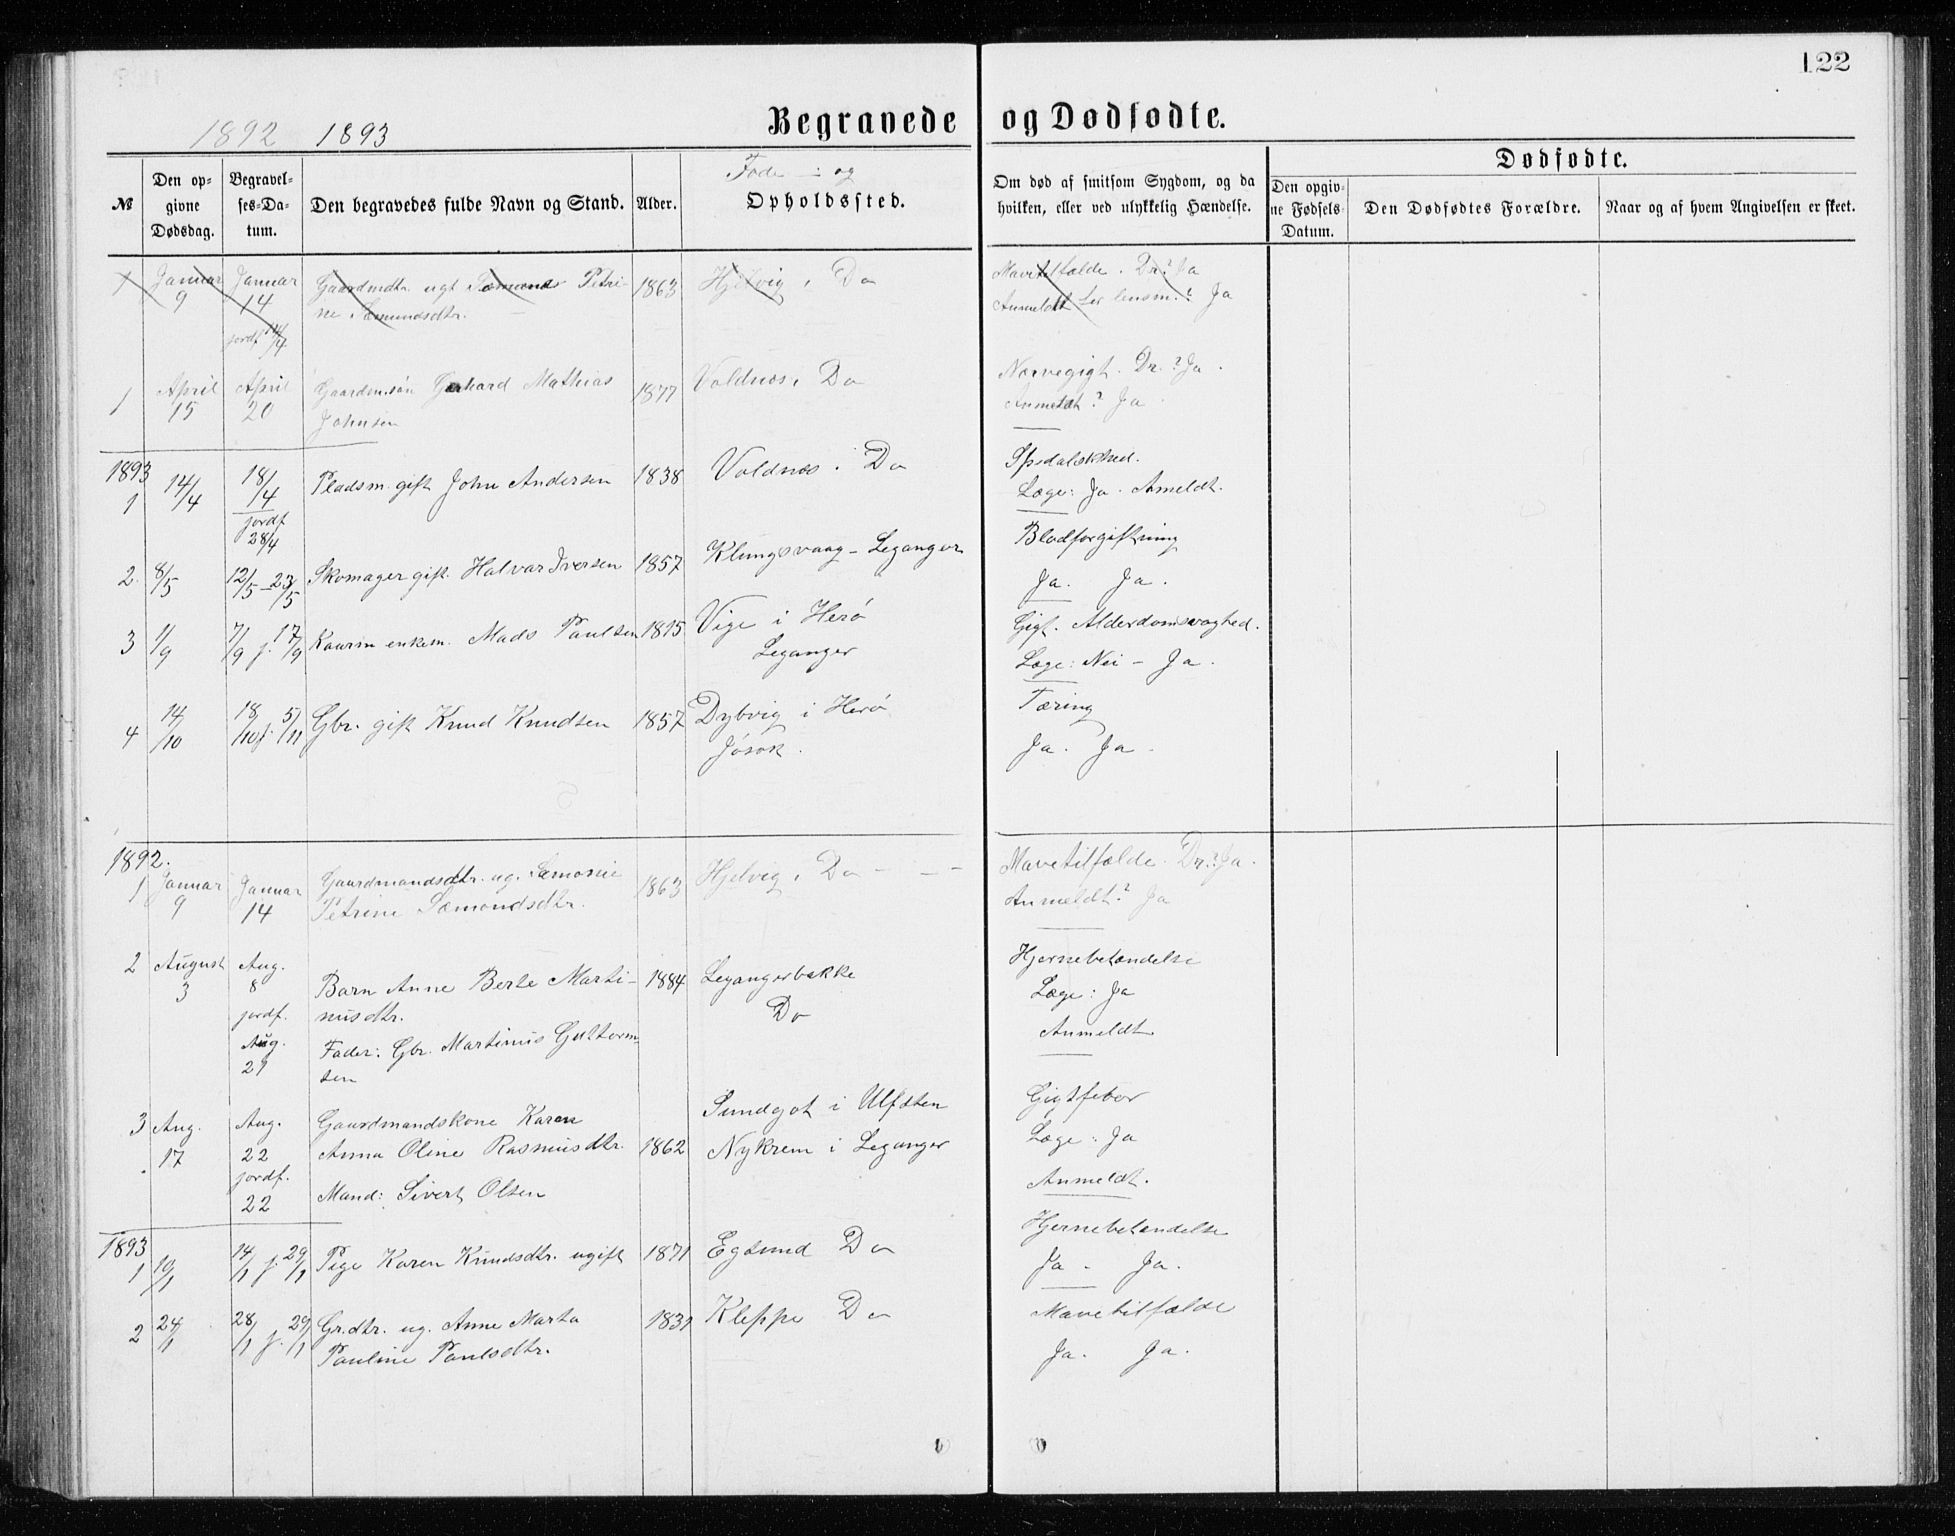 122
1892 1893
Begravede og Dødfødte.
№
Den opgivne Dødsdag.
Begravelses-Datum.
Den begravedes fulde Navn og Stand.
Alder.
Føde - og
Opholdssted.
Om død af smitsom Sygdom, og da
hvilken, eller ved ulykkelig Hændelse.
Dødfødte.
Den opgivne Fødsels-Datum.
Den Dødfødtes Forældre.
Naar og af hvem Angivelsen er skeet.
1 Januar 9 Januar 14 Gaardmdtr. ugt Petri- 1863 Hjelvig, Do Mavetilfælde. Dr.? Ja
jordf 14/4 ne Sæmundsdtr. Anmeldt lensm.? Ja
1 April 15 April 20 Gaardm.søn Gerhard Mathias 1877 Voldnes, Do Nervegigt. Dr.? Ja.
Johnsen Anmeldt? Ja.
1893
1 14/4 18/4 Pladsm. gift John Andersen 1838 Voldnes i Do Spedalskhed.
jordf 28/4 Læge: Ja. Ameldt.
2. 8/5 12/5 - 23/5 Skomager gift. Halvar Iversen 1857 Klungsvaag - Leganger Blodforgiftning
Ja. Ja.
3 1/9 7/9 j. 17/9 Kaarm enkem. Mads Paulsen 1815 Vige i Herø Gigt. Alderdomsvaghed.
Leganger Læge: Nei - Ja.
4 14/10 18/10 j. 5/11 Gbr. gift Knud Knudsen 1857 Dybvig i Herø Tæring
Jøsok. Ja. Ja.
1892.
1 Januar 9 Januar 14 Gaardmandsdtr. ug. Sæmosine 1863 Hjelvig, Do - - - Mavetilfælde. Dr.? Ja.
Petrine Sæmondsdtr. Anmeldt? Ja
2 August 3 Aug. 8 Barn Anne Berte Marti- 1884 Legangerbakke Hjernebetændelse
jordf. nusdtr. Do Læge: Ja
Aug. 29 Fader: Gbr. Martinus Guttorm- Anmeldt
sen
3 Aug. 17 Aug. 22 Gaardmandskone Karen Sundgot i Ulfsten Gigtfeber
jordf. Anna Oline Rasmusdtr. 1862 Nykrem i Leganger Læge: Ja
22 Mand: Sivert Olsen Anmeldt.
1893
1 10/1 14/1 j. 29/1 Pige Karen Knudsdtr. ugift 1871 Egsund Do Hjernebetændelse
Ja - Ja.
2 24/1 28/1 j. 29/1 Gr.dtr. ug. Anne Marta 1831 Kleppe Do Mavetilfælde
Pauline Paulsdtr. Ja. Ja.